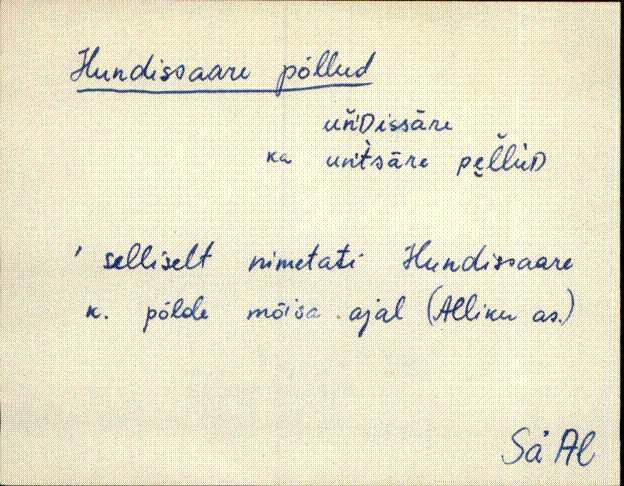 Hundissaare põllud
uňDissāre
ka unt̀sāre pe̮ľľuD
' selliselt nimetati Hundissaare
k. põlde mõisa ajal (Alliku as.)
Sa' Al